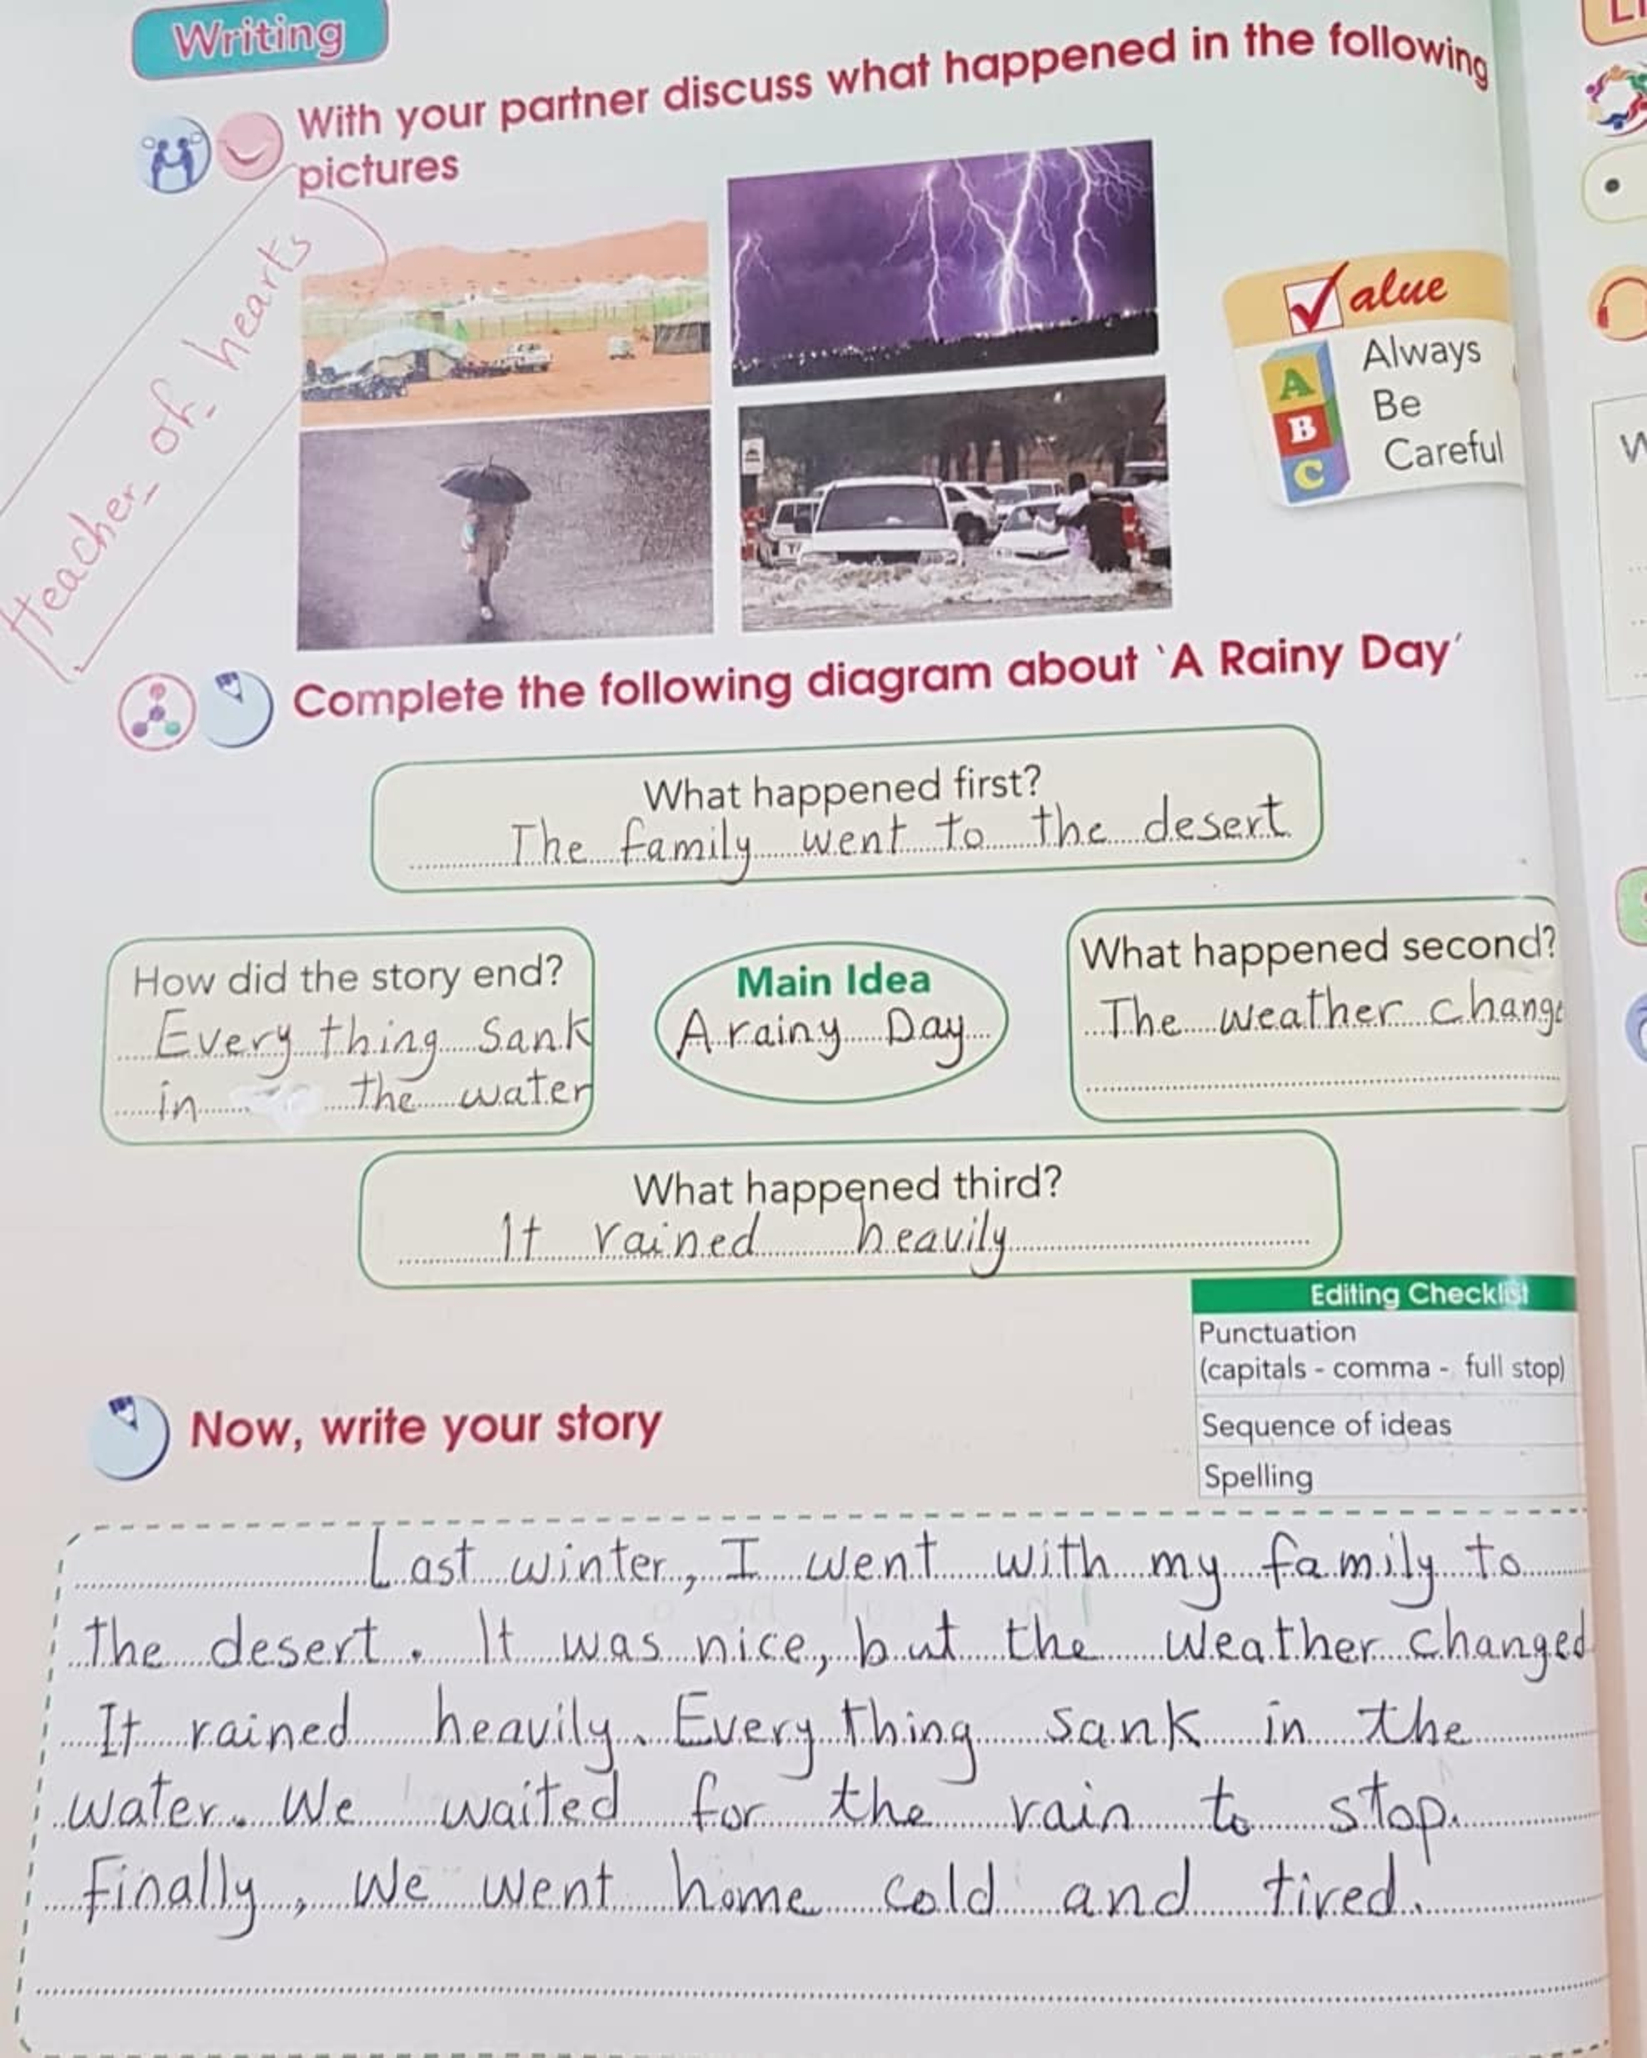 Writing
With your partner discuss what happened in the following
pictures
#teacher_of_hearts
Value
A
B
C
Always
Be
Careful
Complete the following diagram about 'A Rainy Day'
What happened first?
The family went to the desert
How did the story end?
Every thing sank
in the water
Main Idea
A rainy Day
What happened second?
The weather change
What happened third?
It rained heavily
Editing Checklist
Punctuation
(capitals - comma - full stop)
Sequence of ideas
Spelling
Now, write your story
Last winter, I went with my family to
the desert. It was nice, but the weather changed
It rained heavily. Every thing sank in the
water. We waited for the rain to stop.
Finally, We went home cold and tired.